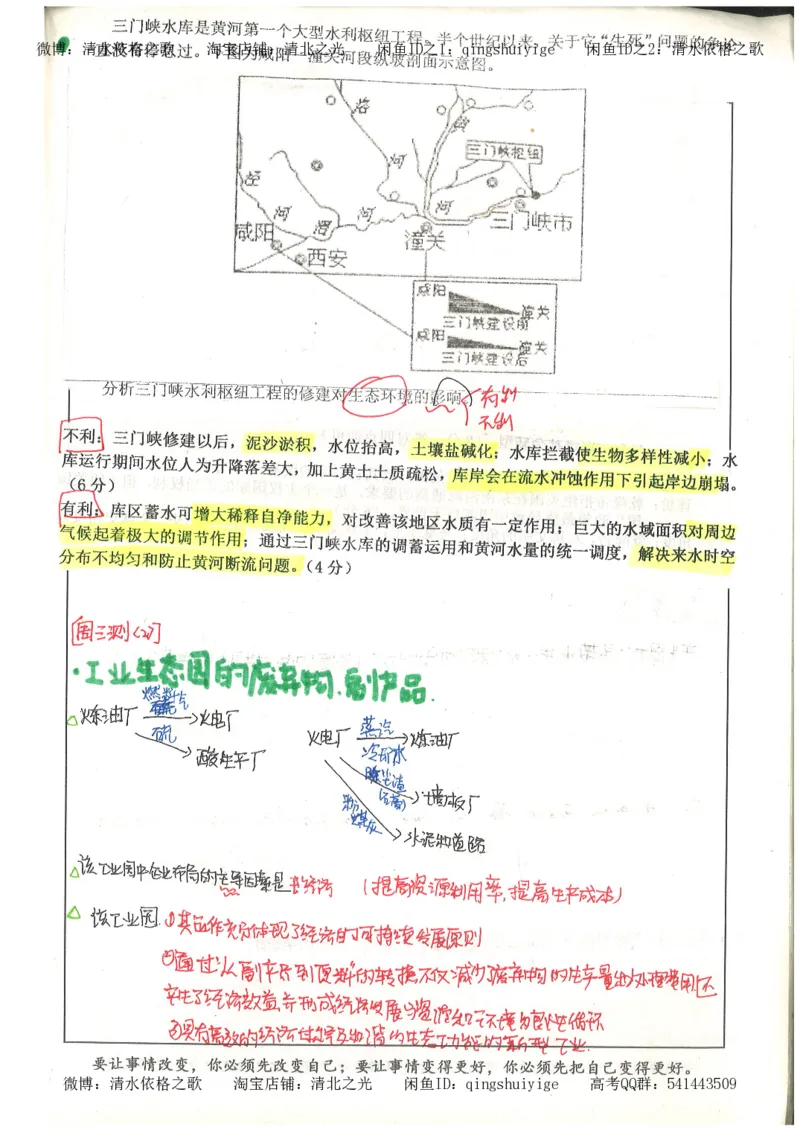 三门峡水库是黄河第一个大型水利枢纽工程。半个世纪以来，关于它“生死”问题的争论
微博：清水依格之歌 淘宝店铺：清北之光 闲鱼ID之1：qingshuiyige 闲鱼ID之2：清水依格之歌
一直没有停息过。下图为咸阳—潼关河段纵坡剖面示意图。
洛
河
黄
河
三门峡枢纽
泾
河
渭
河
咸阳
西安
潼关
三门峡市
咸阳
潼关
三门峡建设前
咸阳
潼关
三门峡建设后
分析三门峡水利枢纽工程的修建对生态环境的影响。
有利
不利
不利：三门峡修建以后，泥沙淤积，水位抬高，土壤盐碱化；水库拦截使生物多样性减小；水
库运行期间水位人为升降落差大，加上黄土土质疏松，库岸会在流水冲蚀作用下引起岸边崩塌。
（6分）
有利：库区蓄水可增大稀释自净能力，对改善该地区水质有一定作用；巨大的水域面积对周边
气候起着极大的调节作用；通过三门峡水库的调蓄运用和黄河水量的统一调度，解决来水时空
分布不均匀和防止黄河断流问题。（4分）
·工业生态园的废弃物、副产品.
炼油厂 燃料汽 火电厂
硫
火电厂 蒸汽 炼油厂
冷却水
墙板厂
粉煤灰
水泥和道路
该工业园中企业布局的主导因素是
（提高资源利用率，提高生产成本）
该工业园 ①其运作充分体现了经济的可持续发展原则
要让事情改变，你必须先改变自己；要让事情变得更好，你必须先把自己变得更好。
微博：清水依格之歌 淘宝店铺：清北之光 闲鱼ID：qingshuiyige 高考QQ群：541443509